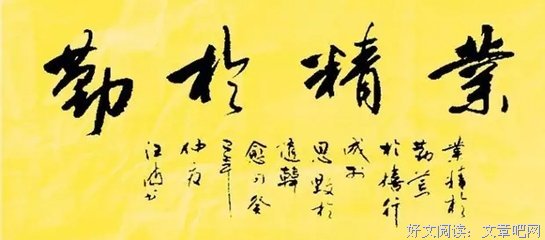 業精於勤
業精於
勤荒
於嬉行
成於
思毀於
隨韓
愈句癸
仲夏
好文阅读：文章吧网